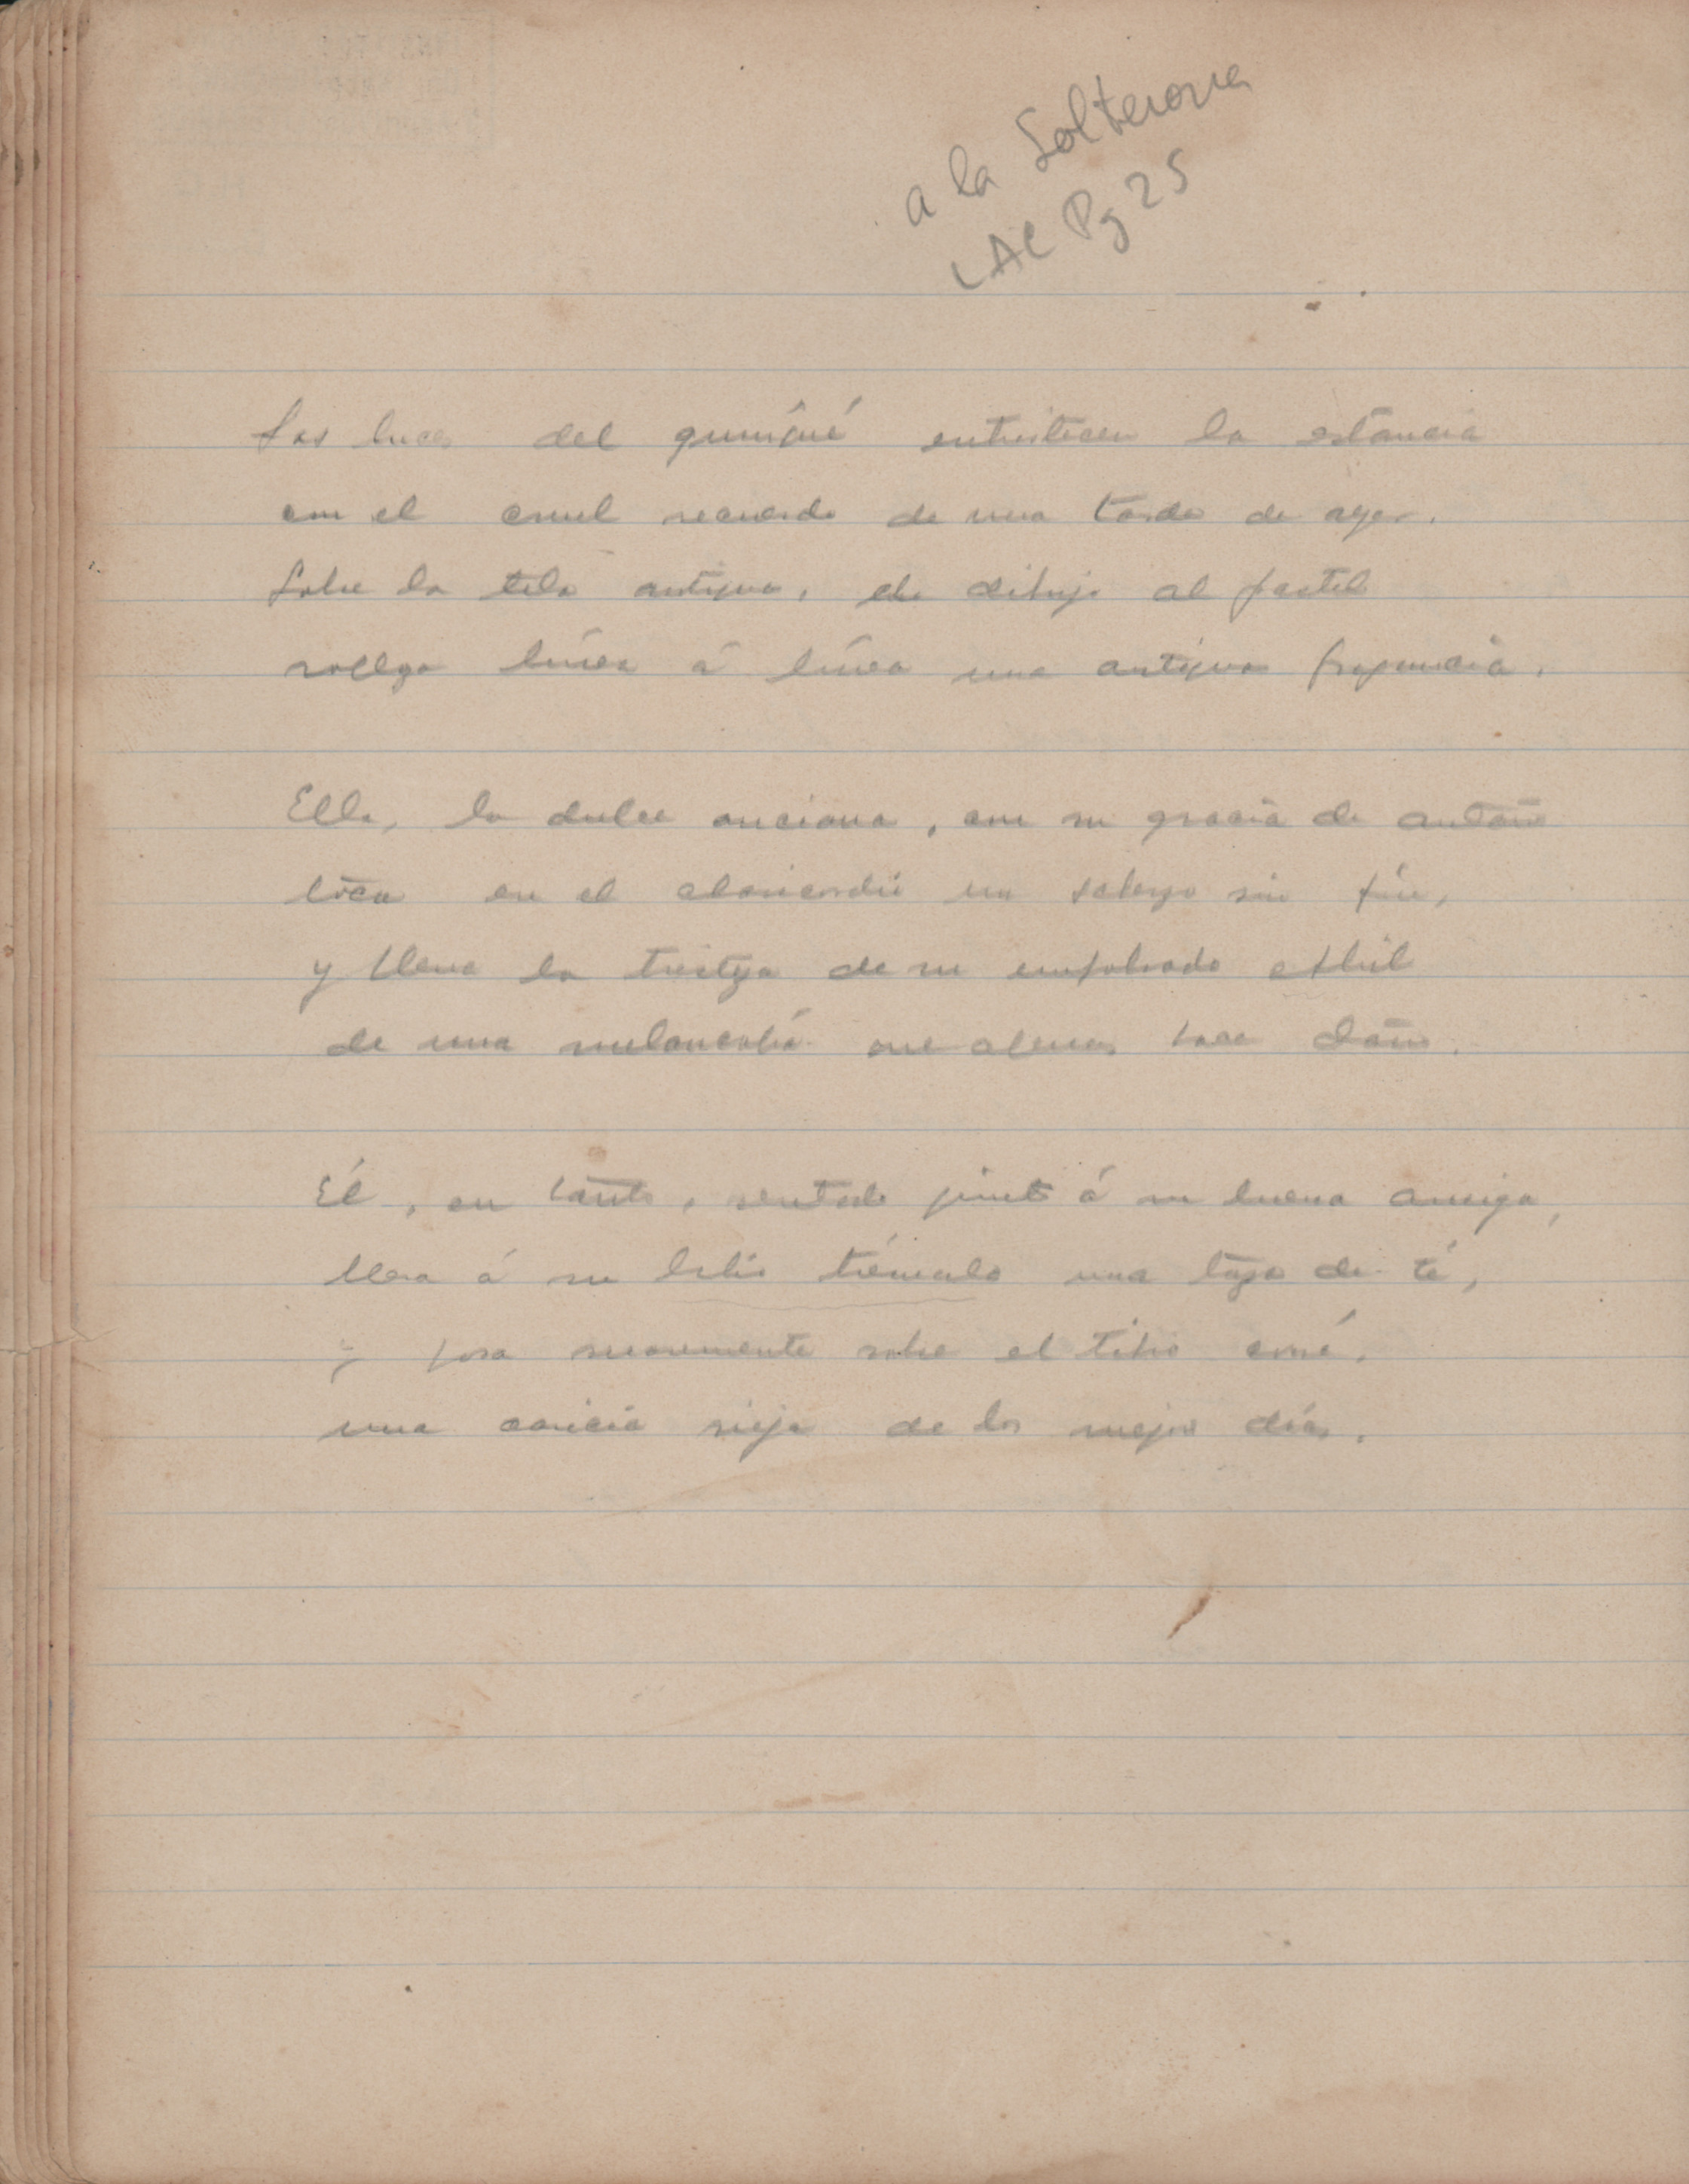 a la Solterona
LAC Pg 25
Las luces del quinqué entristecen la estancia
con el cruel recuerdo de una tarde de ayer.
Sobre la tela antigua, el dibujo al pastel
línea á línea una antigua fragancia.
Ella, la dulce anciana, con su gracia de antaño
toca en el clavicordio un scherzo sin fin,
y llena la tristeza de su empolvado
de una melancolía que apenas hace daño.
Él, en tanto, sentado junto á su buena amiga,
lleva á su labio trémulo una taza de té,
y posa suavemente sobre el tibio
una caricia vieja de los mejores días.